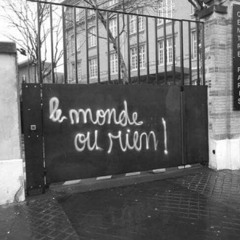 le monde
ou rien!